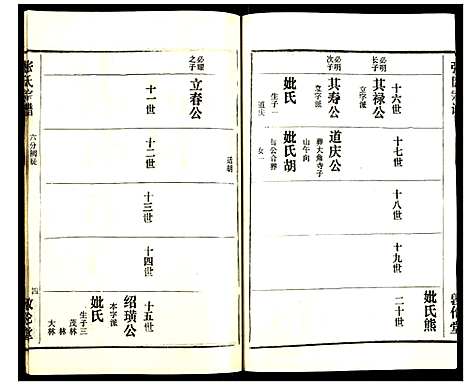 十六世
必明
长子
其禄公
立字派
必明
次子
其寿公
立字派
妣氏
生子一
道庆
十七世
道庆公
葬大角寺子
山午向
妣氏胡
与公合葬
女一
十八世
十九世
二十世
妣氏熊
敦伦堂
必耀
之子
立春公
十一世
十二世
十三世
十四世
十五世
绍璜公
本字派
妣氏
生子三
茂林
林
大林
张氏宗谱
四
敦伦堂